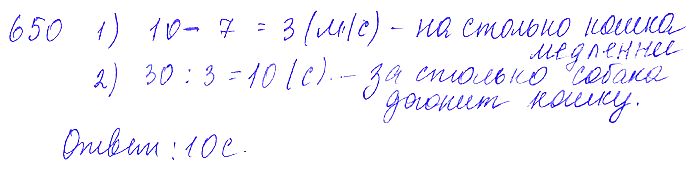 650 1) 10 - 7 = 3 (м/с) - на столько кошка
медленнее
2) 30 : 3 = 10 (с). - за столько собака
догонит кошку.
Ответ: 10с.